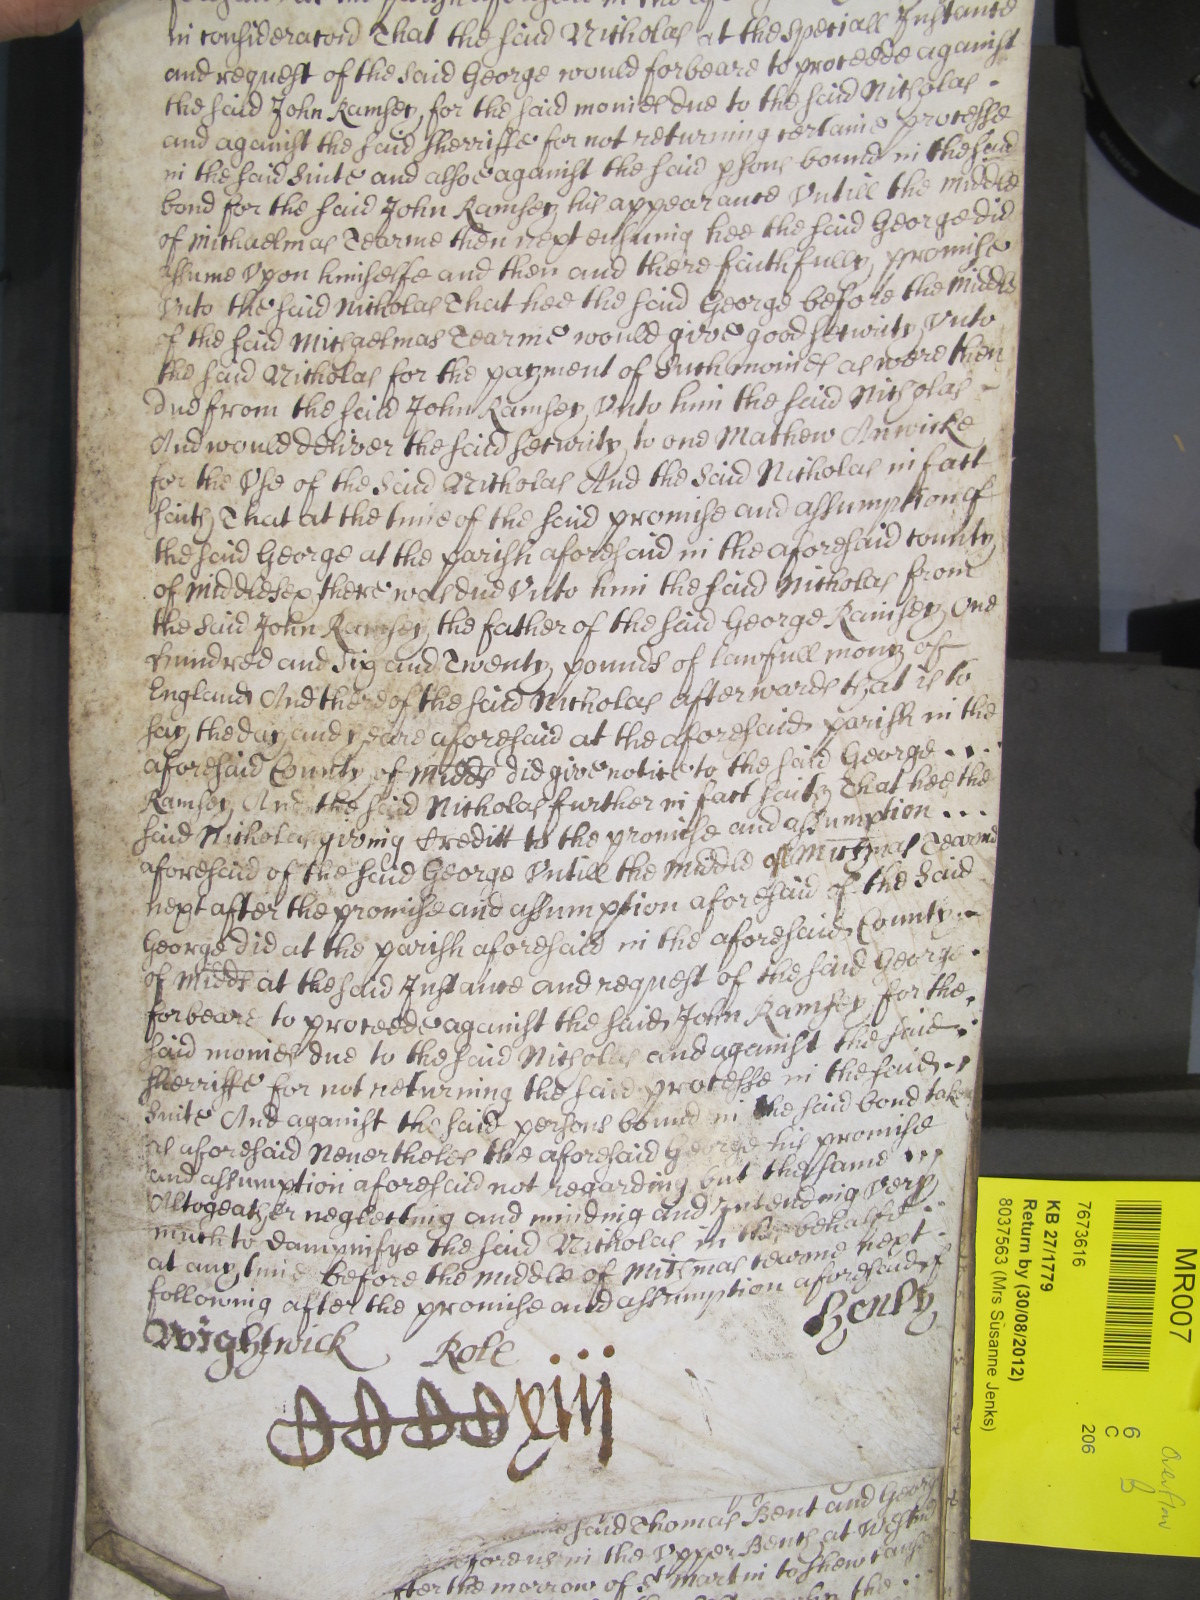 in consideracon That the said Nicholas at the speciall Instance
and request of the said George would forbeare to proceede against
the said John Ramsey, for the said monies due to the said Nicholas -
and against the said Sherriffe for not returning certaine processe
in the said Suite and alsoe against the said psons bound in the said
bond for the said John Ramsey his appearance Vntill the middle
of Michaelmas Tearme then next ensuing hee the said George did
assume Vpon himselfe and then and there faithfully promise
Vnto the said Nicholas That hee the said George before the Middle
of the said Michaelmas Tearme would give good security Vnto
the said Nicholas for the payment of Such monies as were then
due from the said John Ramsey Vnto him the said Nicholas -
And would deliver the said security to one Mathew Anwicke
for the Vse of the said Nicholas And the said Nicholas in fact
saith That at the time of the said promise and assumption of
the said George at the parish aforesaid in the aforesaid county
of Middlesex there was due Vnto him the said Nicholas from
the said John Ramsey the father of the said George Ramsey One
hundred and Six and Twenty pounds of lawfull mony of
England And thereof the said Nicholas afterwards that is to
say the day and yeare aforesaid at the aforesaid parish in the
aforesaid County of Midds did give notice to the said George . . .
Ramsey And the said Nicholas further in fact saith That hee the
said Nicholas giving Creditt to the promise and assumption . . .
aforesaid of the said George Vntill the Middle of Michmas Tearme
next after the promise and assumption aforesaid of the said
George did at the parish aforesaid in the aforesaid County -
of Midds at the said Instance and request of the said George -
forbeare to proceede against the said John Ramsey for the
said monies due to the said Nicholas and against the said
Sherriffe for not returning the said processe in the said
Suite And against the said persons bound in the said bond taken
as aforesaid Nevertheles the aforesaid George his promise
and assumption aforesaid not regarding but the same
Altogeather neglecting and minding and Intending Very
much to dampnifye the said Nicholas in this behalfe
at any time before the middle of Michmas tearme next
following after the promise and assumption aforesaid of
Wightwick Role Henly
xiij
said Thomas Bent and George
in the Vpper Bench at Westm
after the morrow of St Martin to shew cause
MR007
7673616
KB 27/1779
Return by (30/08/2012)
8037563 (Mrs Susanne Jenks)
6
C
206
Overflow
B